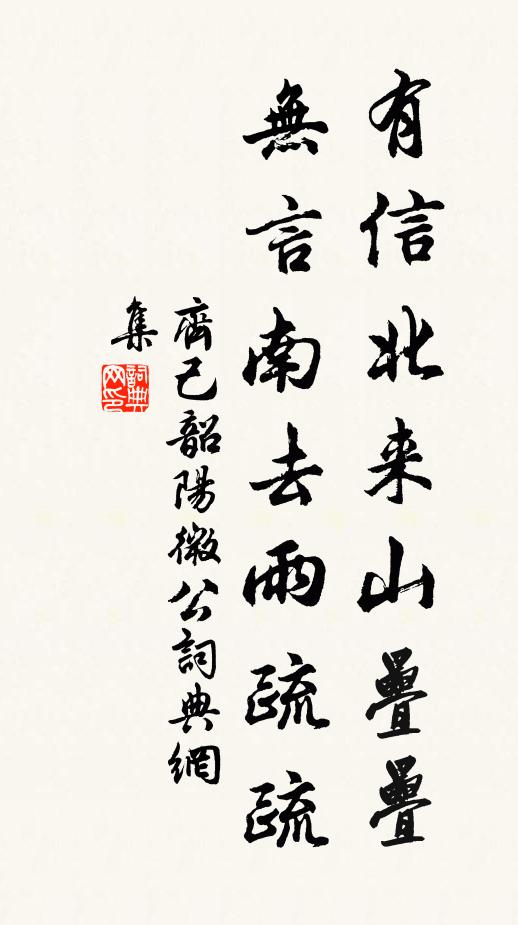 有信北来山疊疊
無言南去雨疏疏
齊己韶陽微公詞典網
集
詞典网印